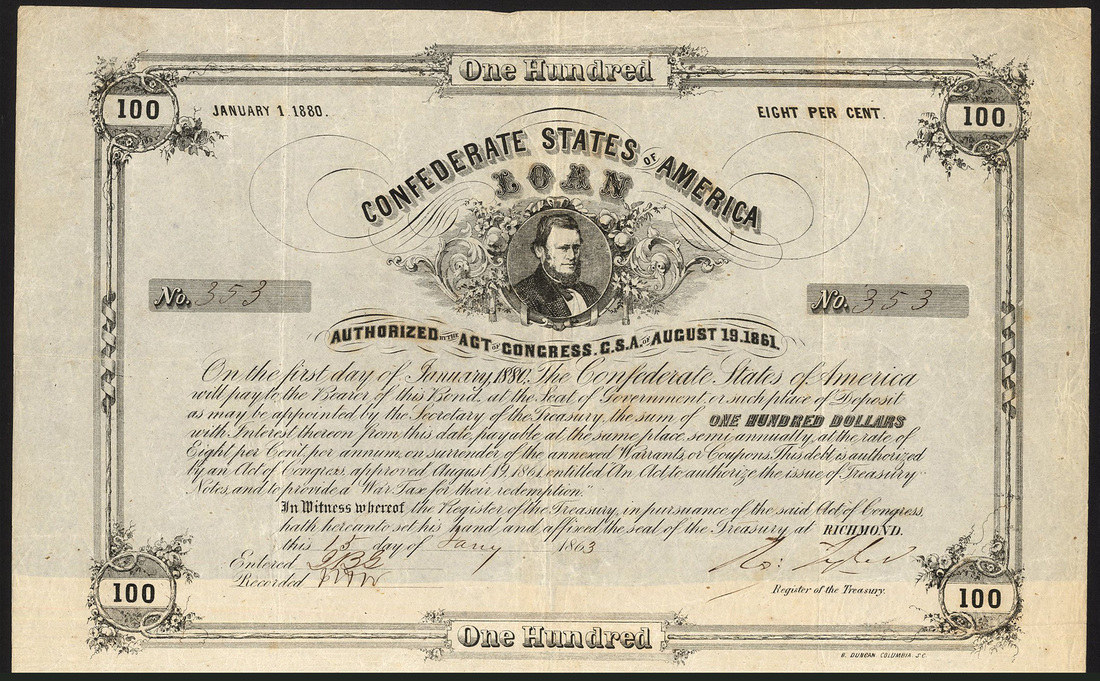 One Hundred
100
JANUARY 1 1880.
EIGHT PER CENT.
100
CONFEDERATE STATES OF AMERICA
LOAN
No. 353
No. 353
AUTHORIZED BY THE ACT OF CONGRESS. C.S.A. OF AUGUST 19.1861.
On the first day of January, 1880, The Confederate States of America
will pay to the Bearer of this Bond, at the Seat of Government, or such place of Deposit
as may be appointed by the Secretary of the Treasury, the sum of ONE HUNDRED DOLLARS
with Interest thereon from this date, payable at the same place semi-annually, at the rate of
Eight per Cent, per annum, on surrender of the annexed Warrants, or Coupons. This debt is authorized
by an Act of Congress, approved August 19, 1861, entitled "An Act to authorize the issue of Treasury
Notes, and to provide a War Tax for their redemption."
In Witness whereof the Register of the Treasury, in pursuance of the said Act of Congress,
hath hereunto set his hand and affixed the seal of the Treasury, at RICHMOND.
this 15 day of Jany 1863
Entered
Recorded
Ro: Tyler
Register of the Treasury.
100
100
One Hundred
B. DUNCAN, COLUMBIA, S.C.